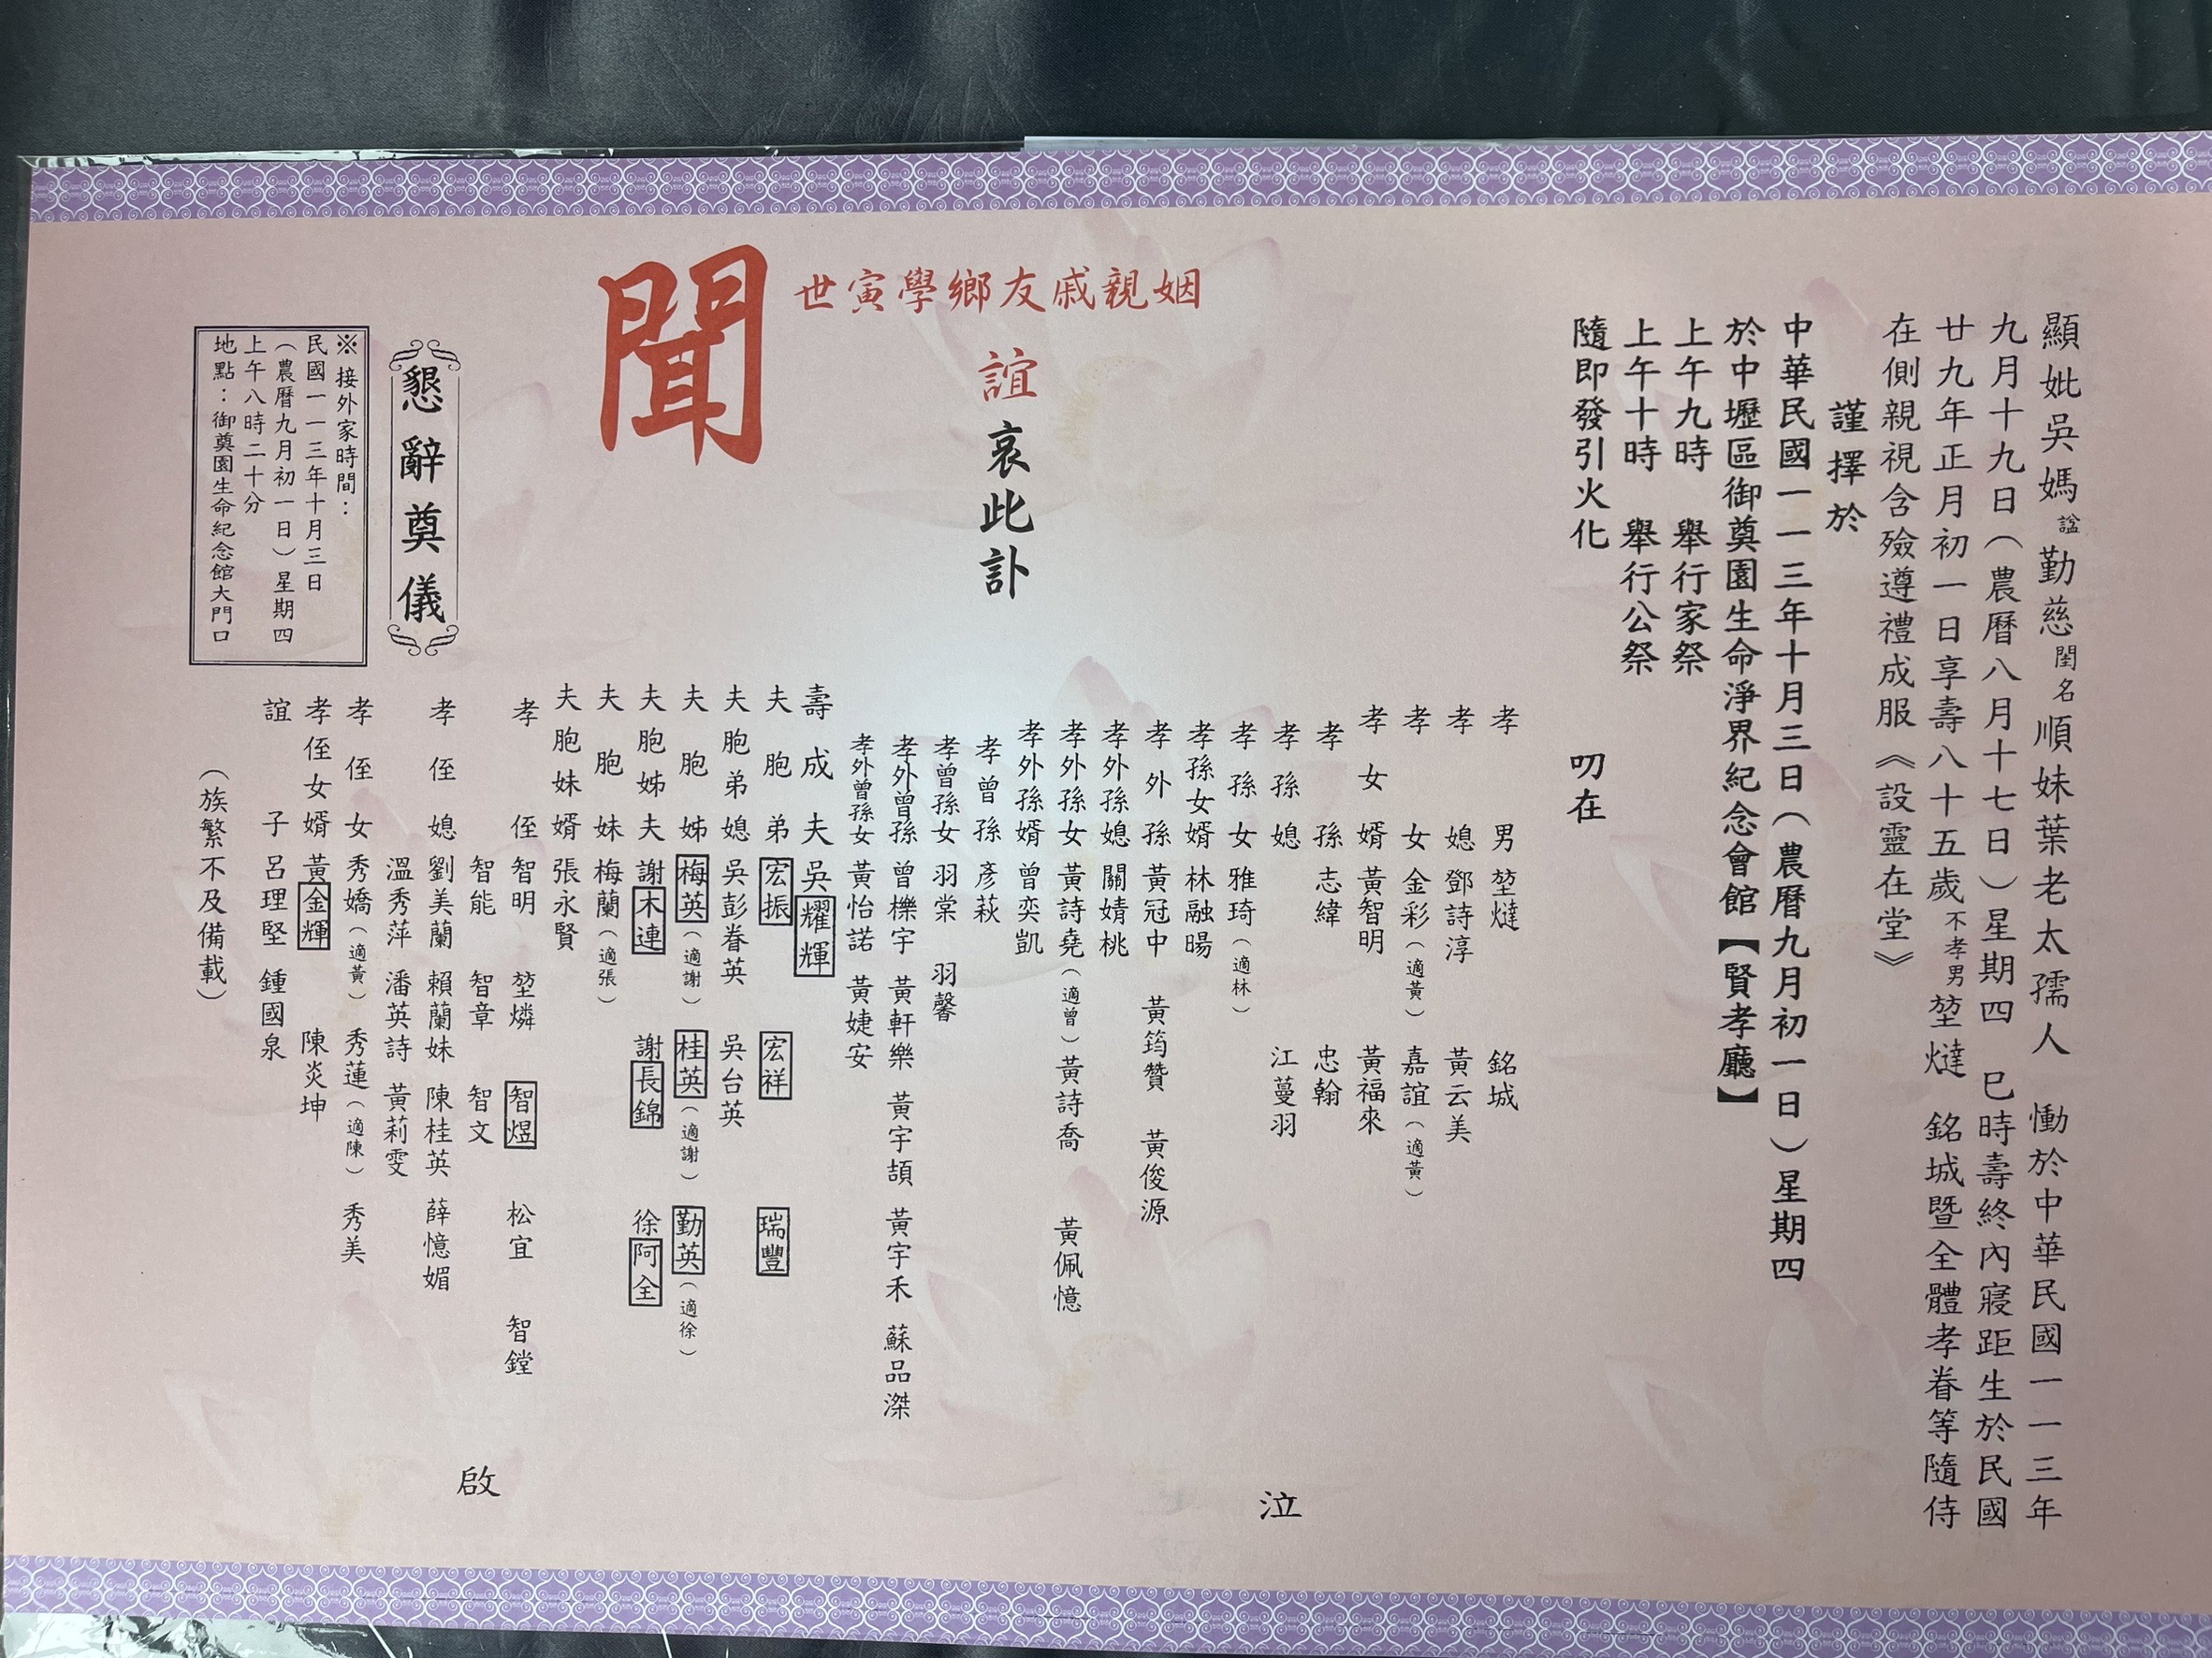 顯妣吳媽諡勤慈閨名順妹葉老太孺人　慟於中華民國一一三年
九月十九日（農曆八月十七日）星期四　巳時壽終內寢距生於民國
廿九年正月初一日享壽八十五歲不孝男堃燵　銘城暨全體孝眷等隨侍
在側親視含殮遵禮成服《設靈在堂》
謹擇於
中華民國一一三年十月三日（農曆九月初一日）星期四
於中壢區御奠園生命淨界紀念會館【賢孝廳】
上午九時　舉行家祭
上午十時　舉行公祭
隨即發引火化
叨在
姻親戚友鄉學寅世
誼哀此訃
聞
孝男　堃燵　銘城
孝媳　鄧詩淳　黃云美
孝女　金彩（適黃）　嘉誼（適黃）
孝女婿　黃智明　黃福來
孝孫　志緯　忠翰
孝孫媳　江蔓羽
孝孫女　雅琦（適林）
孝孫女婿　林融暘
孝外孫　黃冠中　黃筠贊　黃俊源
孝外孫媳　關婧桃
孝外孫女　黃詩堯（適曾）　黃詩喬　黃佩憶
孝外孫婿　曾奕凱
孝曾孫　彥萩
孝曾孫女　羽棠　羽馨
孝外曾孫　曾櫟宇　黃軒樂　黃宇頡　黃宇禾　蘇品滐
孝外曾孫女　黃怡諾　黃婕安
泣
壽成夫　吳耀輝
夫胞弟　宏振　宏祥　瑞豐
夫胞弟媳　吳彭眷英　吳台英
夫胞姊　梅英（適謝）　桂英（適謝）　勤英（適徐）
夫胞姊夫　謝木連　謝長錦　徐阿全
夫胞妹　梅蘭（適張）
夫胞妹婿　張永賢
孝侄　智明　堃燐　智煜　松宜　智鏜
智能　智章　智文
孝侄媳　劉美蘭　賴蘭妹　陳桂英　薛憶媚
溫秀萍　潘英詩　黃莉雯
孝侄女　秀嬌（適黃）　秀蓮（適陳）　秀美
孝侄女婿　黃金輝　陳炎坤
誼子　呂理堅　鍾國泉
（族繁不及備載）
啟
懇辭奠儀
※接外家時間：
民國一一三年十月三日
（農曆九月初一日）星期四
上午八時二十分
地點：御奠園生命紀念館大門口